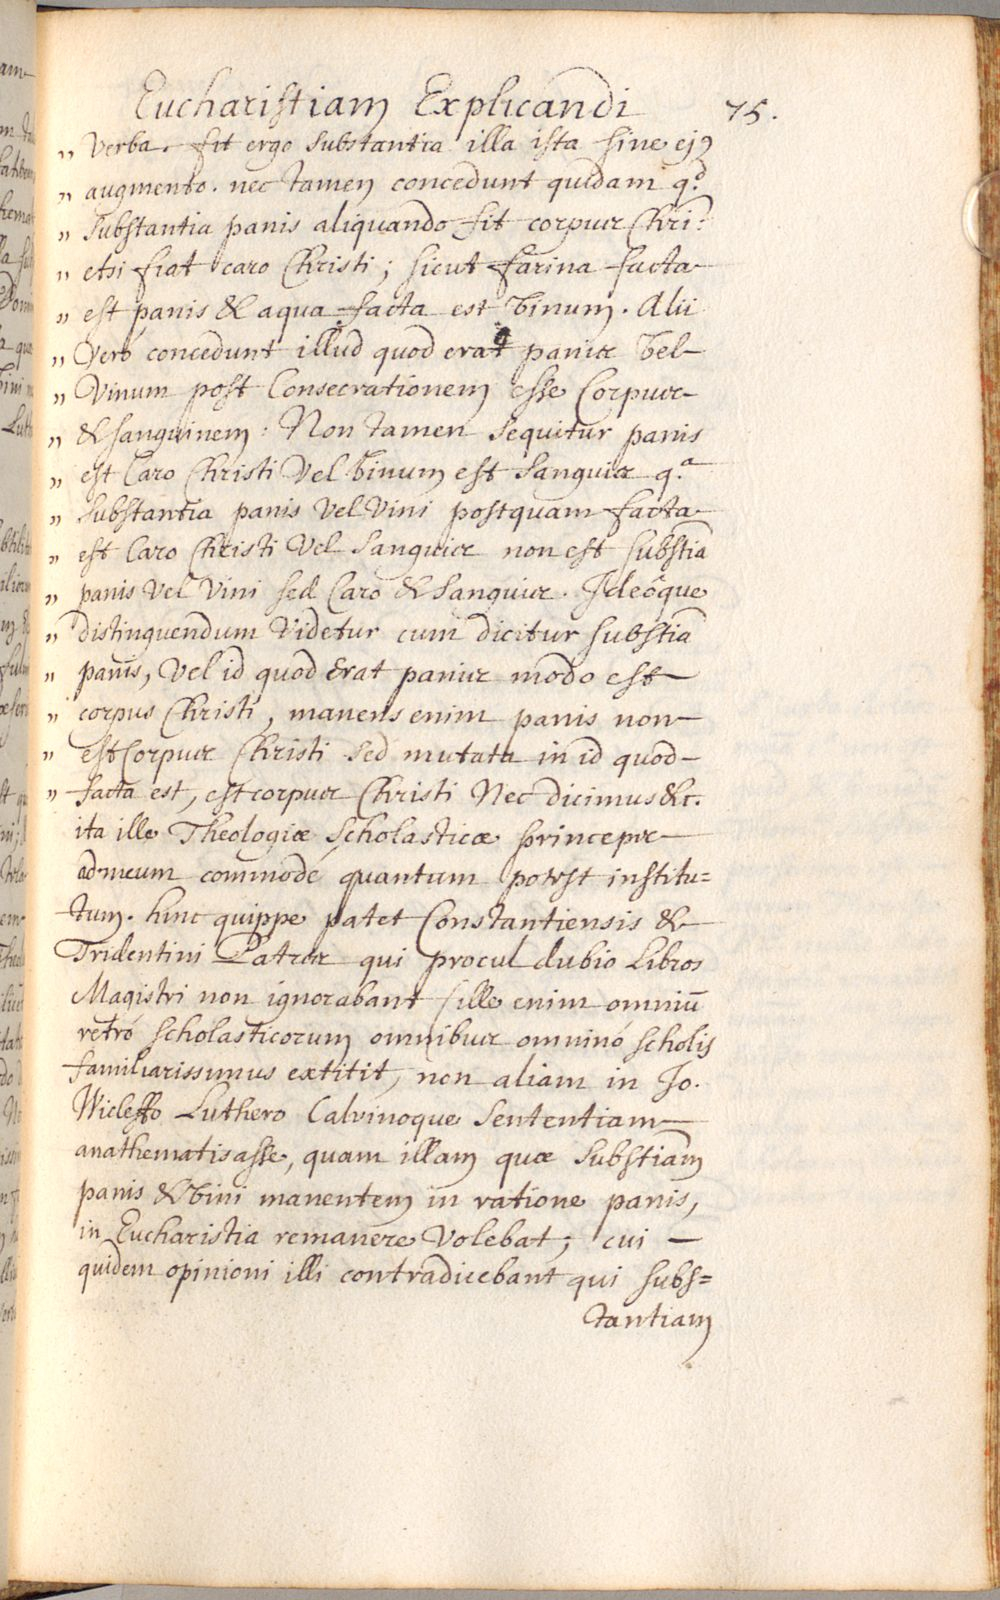 Eucharistiam Explicandi 75.
„ Verba. fit ergo substantia illa ista sine ejꝯ
„ augmento. nec tamen concedunt quidam q.d
„ substantia panis aliquando sit corpus Chri:
„ etsi fiat caro Christi; sicut farina facta
„ est panis & aqua facta est Vinum. Alii
„ Vero concedunt illud quod erat panis Vel
„ Vinum post Consecrationem esse Corpus
„ & sanguinem: Non tamen sequitur panis
„ est Caro Christi Vel Vinum est Sanguis q.a
„ substantia panis Vel Vini postquam facta
„ est Caro Christi Vel Sanguis non est substia
„ panis Vel Vini sed Caro & Sanguis. Ideóque
„ distinguendum Videtur cum dicitur substia
„ panis, Vel id quod erat panis modo est
„ corpus Christi, manens enim panis non
„ est Corpus Christi sed mutata in id quod
„ facta est, est corpus Christi Nec dicimus &c.
ita ille Theologiæ Scholasticæ princeps
ad meum commodé quantum potest institu=
tum. hinc quippe patet Constantiensis &
Tridentini Patres qui procul dubio Libros
Magistri non ignorabant (ille enim omniū
retró scholasticorum omnibus omninó scholis
familiarissimus extitit, non aliam in Jo.
Wicleffo Luthero Calvinoque Sententiam
anathematisasse, quam illam quæ Substiam
panis & Vini manentem in ratione panis,
in Eucharistia remanere Volebat; cui
quidem opinioni illi contradicebant qui subs=
tantiam